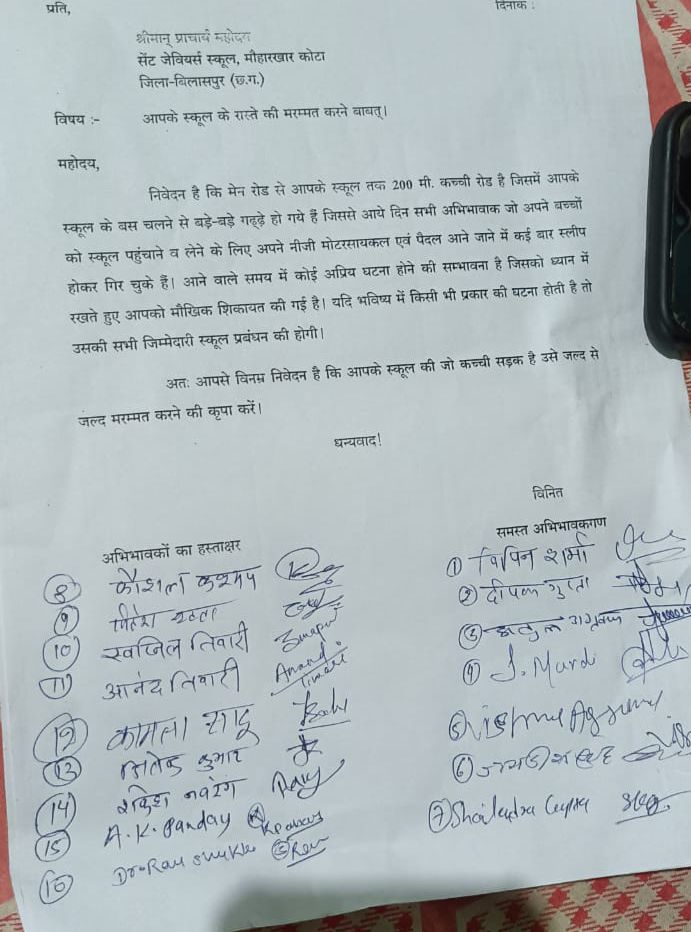 प्रति,
दिनांक :
श्रीमान् प्राचार्य महोदय
सेंट जेवियर्स स्कूल, मौहारखार कोटा
जिला-बिलासपुर (छ.ग.)
विषय :- आपके स्कूल के रास्ते की मरम्मत करने बाबत्।
महोदय,
निवेदन है कि मेन रोड से आपके स्कूल तक 200 मी. कच्ची रोड है जिसमें आपके
स्कूल के बस चलने से बड़े-बड़े गढ्ढे हो गये हैं जिससे आये दिन सभी अभिभावाक जो अपने बच्चों
को स्कूल पहुंचाने व लेने के लिए अपने नीजी मोटरसायकल एवं पैदल आने जाने में कई बार स्लीप
होकर गिर चुके हैं। आने वाले समय में कोई अप्रिय घटना होने की सम्भावना है जिसको ध्यान में
रखते हुए आपको मौखिक शिकायत की गई है। यदि भविष्य में किसी भी प्रकार की घटना होती है तो
उसकी सभी जिम्मेदारी स्कूल प्रबंधन की होगी।
अतः आपसे विनम्र निवेदन है कि आपके स्कूल की जो कच्ची सड़क है उसे जल्द से
जल्द मरम्मत करने की कृपा करें।
धन्यवाद!
विनित
समस्त अभिभावकगण
① विपिन शर्मा
② दीपक गुप्ता
③
④ J. Murdi
⑤
⑥
⑦ Shailendra Gupta
अभिभावकों का हस्ताक्षर
⑧ कौशल कश्यप
⑨
⑩ स्वप्निल तिवारी
⑪ आनंद तिवारी Anand Tiwari
⑫ कमला साहू
⑬ कुमार
⑭ राकेश नवरंग
⑮ A.K. Panday
⑯ Dr. Ravi Shukla